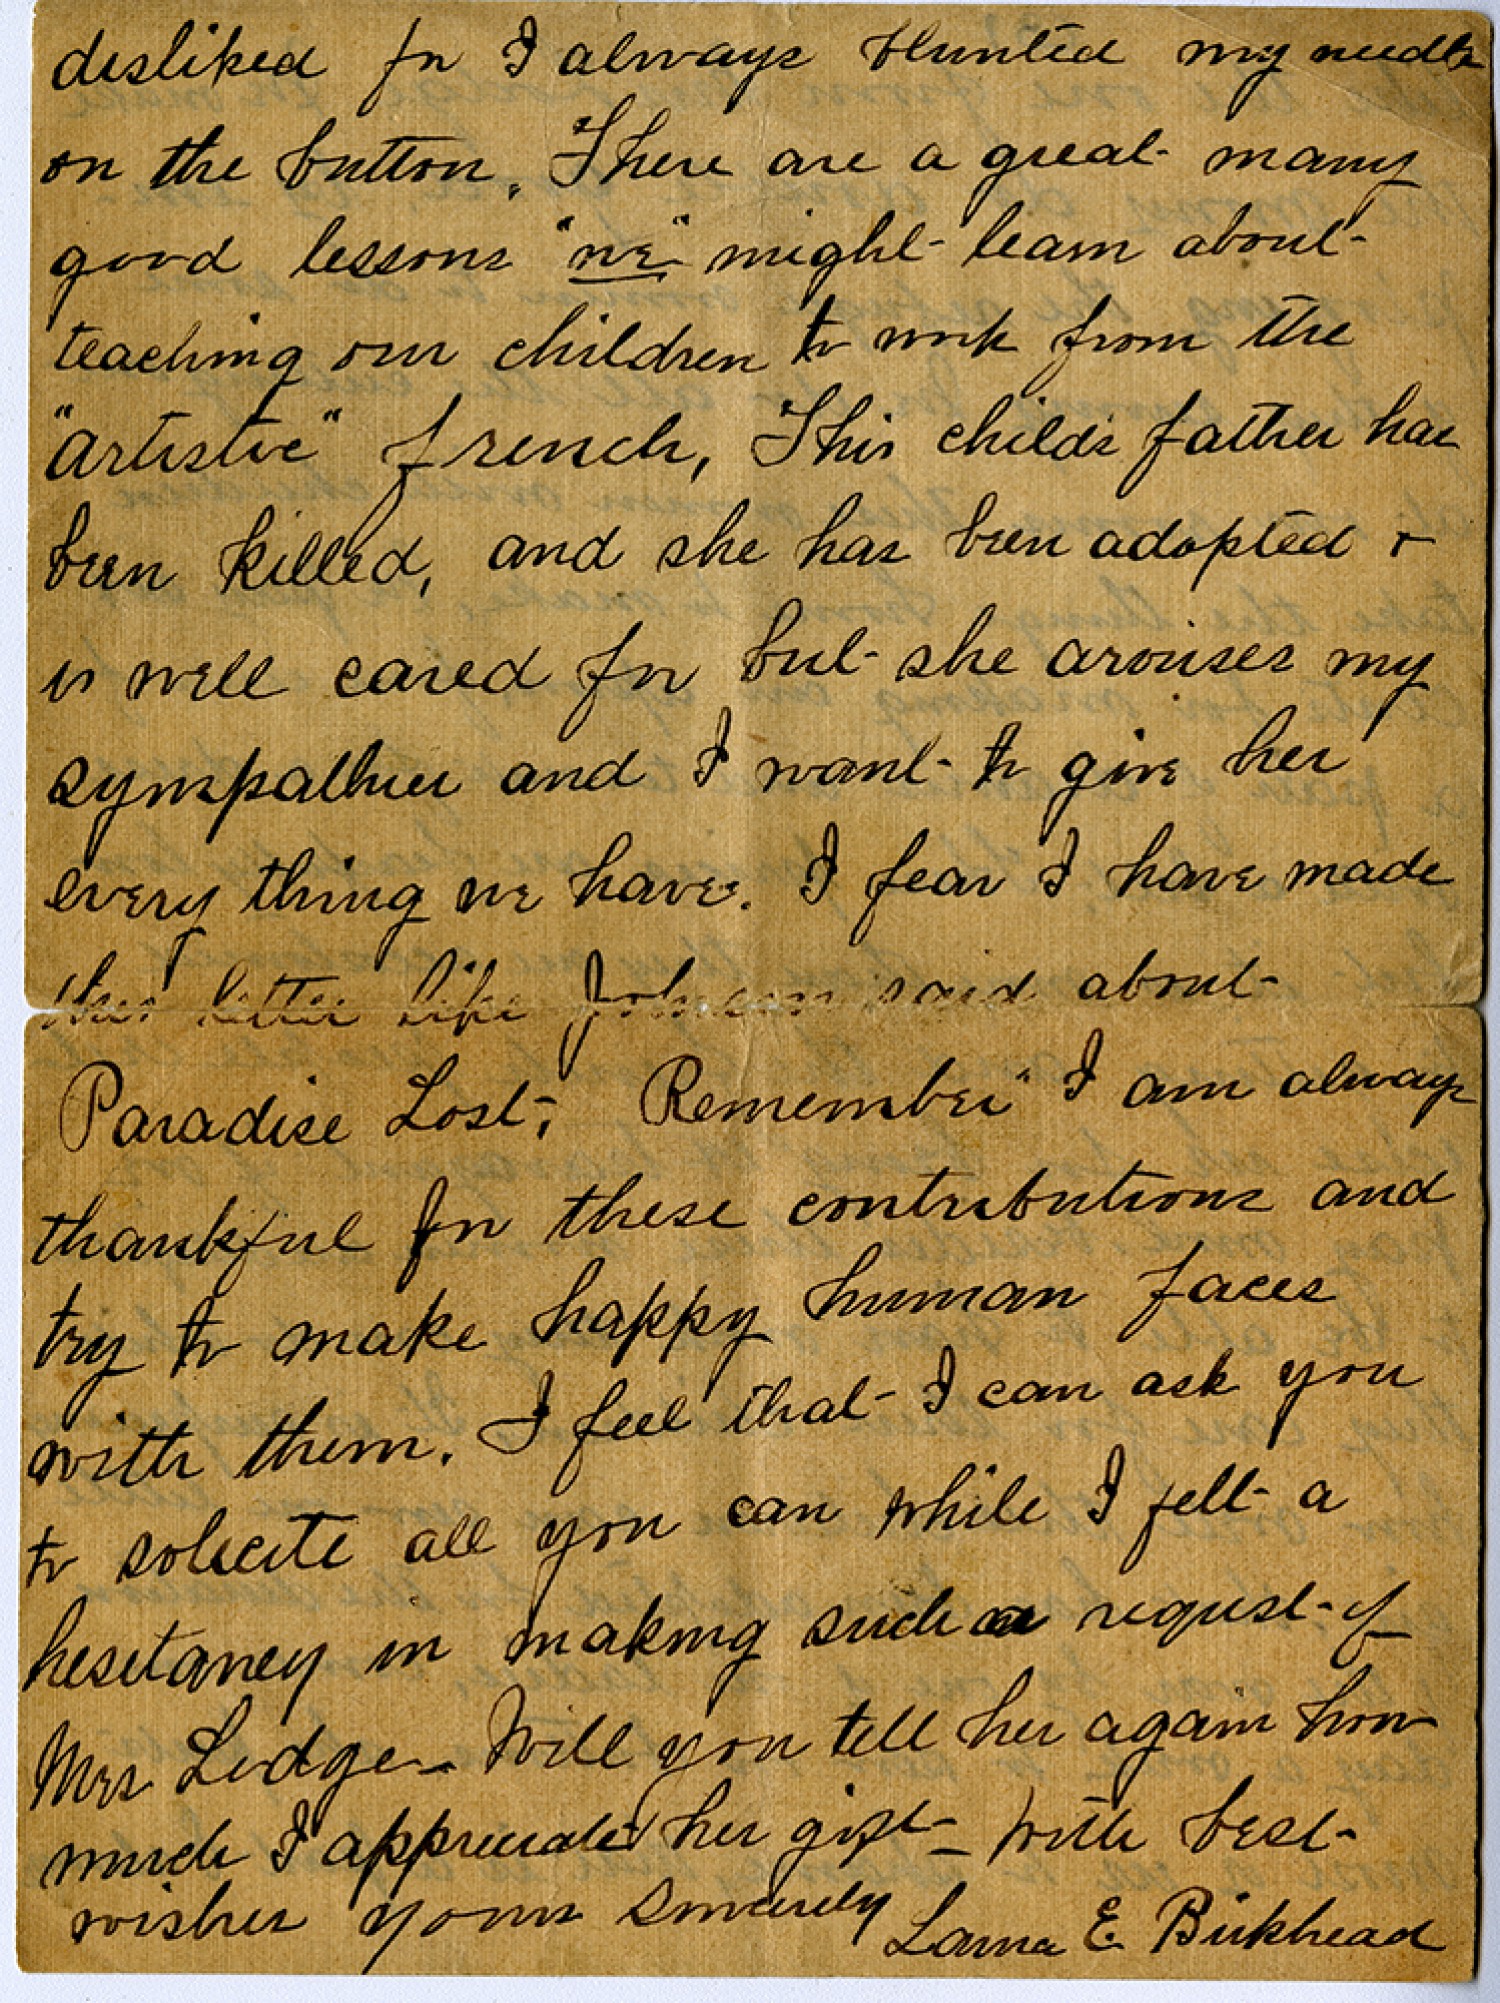 disliked for I always blunted my needle
on the button. There are a great many
good lessons "we" might learn about
teaching our children to work from the
"artistic" french, This childs father has
been killed, and she has been adopted &
is well cared for but she arouses my
sympathies and I want to give her
every thing we have. I fear I have made
this letter like Johnson said about
Paradise Lost, Remember I am always
thankful for these contributions and
try to make happy human faces
with them. I feel that I can ask you
to solicite all you can while I felt a
hesitancy in making such a request of
Mrs Ledge— Will you tell her again how
much I appreciated her gift— With best
wishes yours sincerely Laura E Birkhead